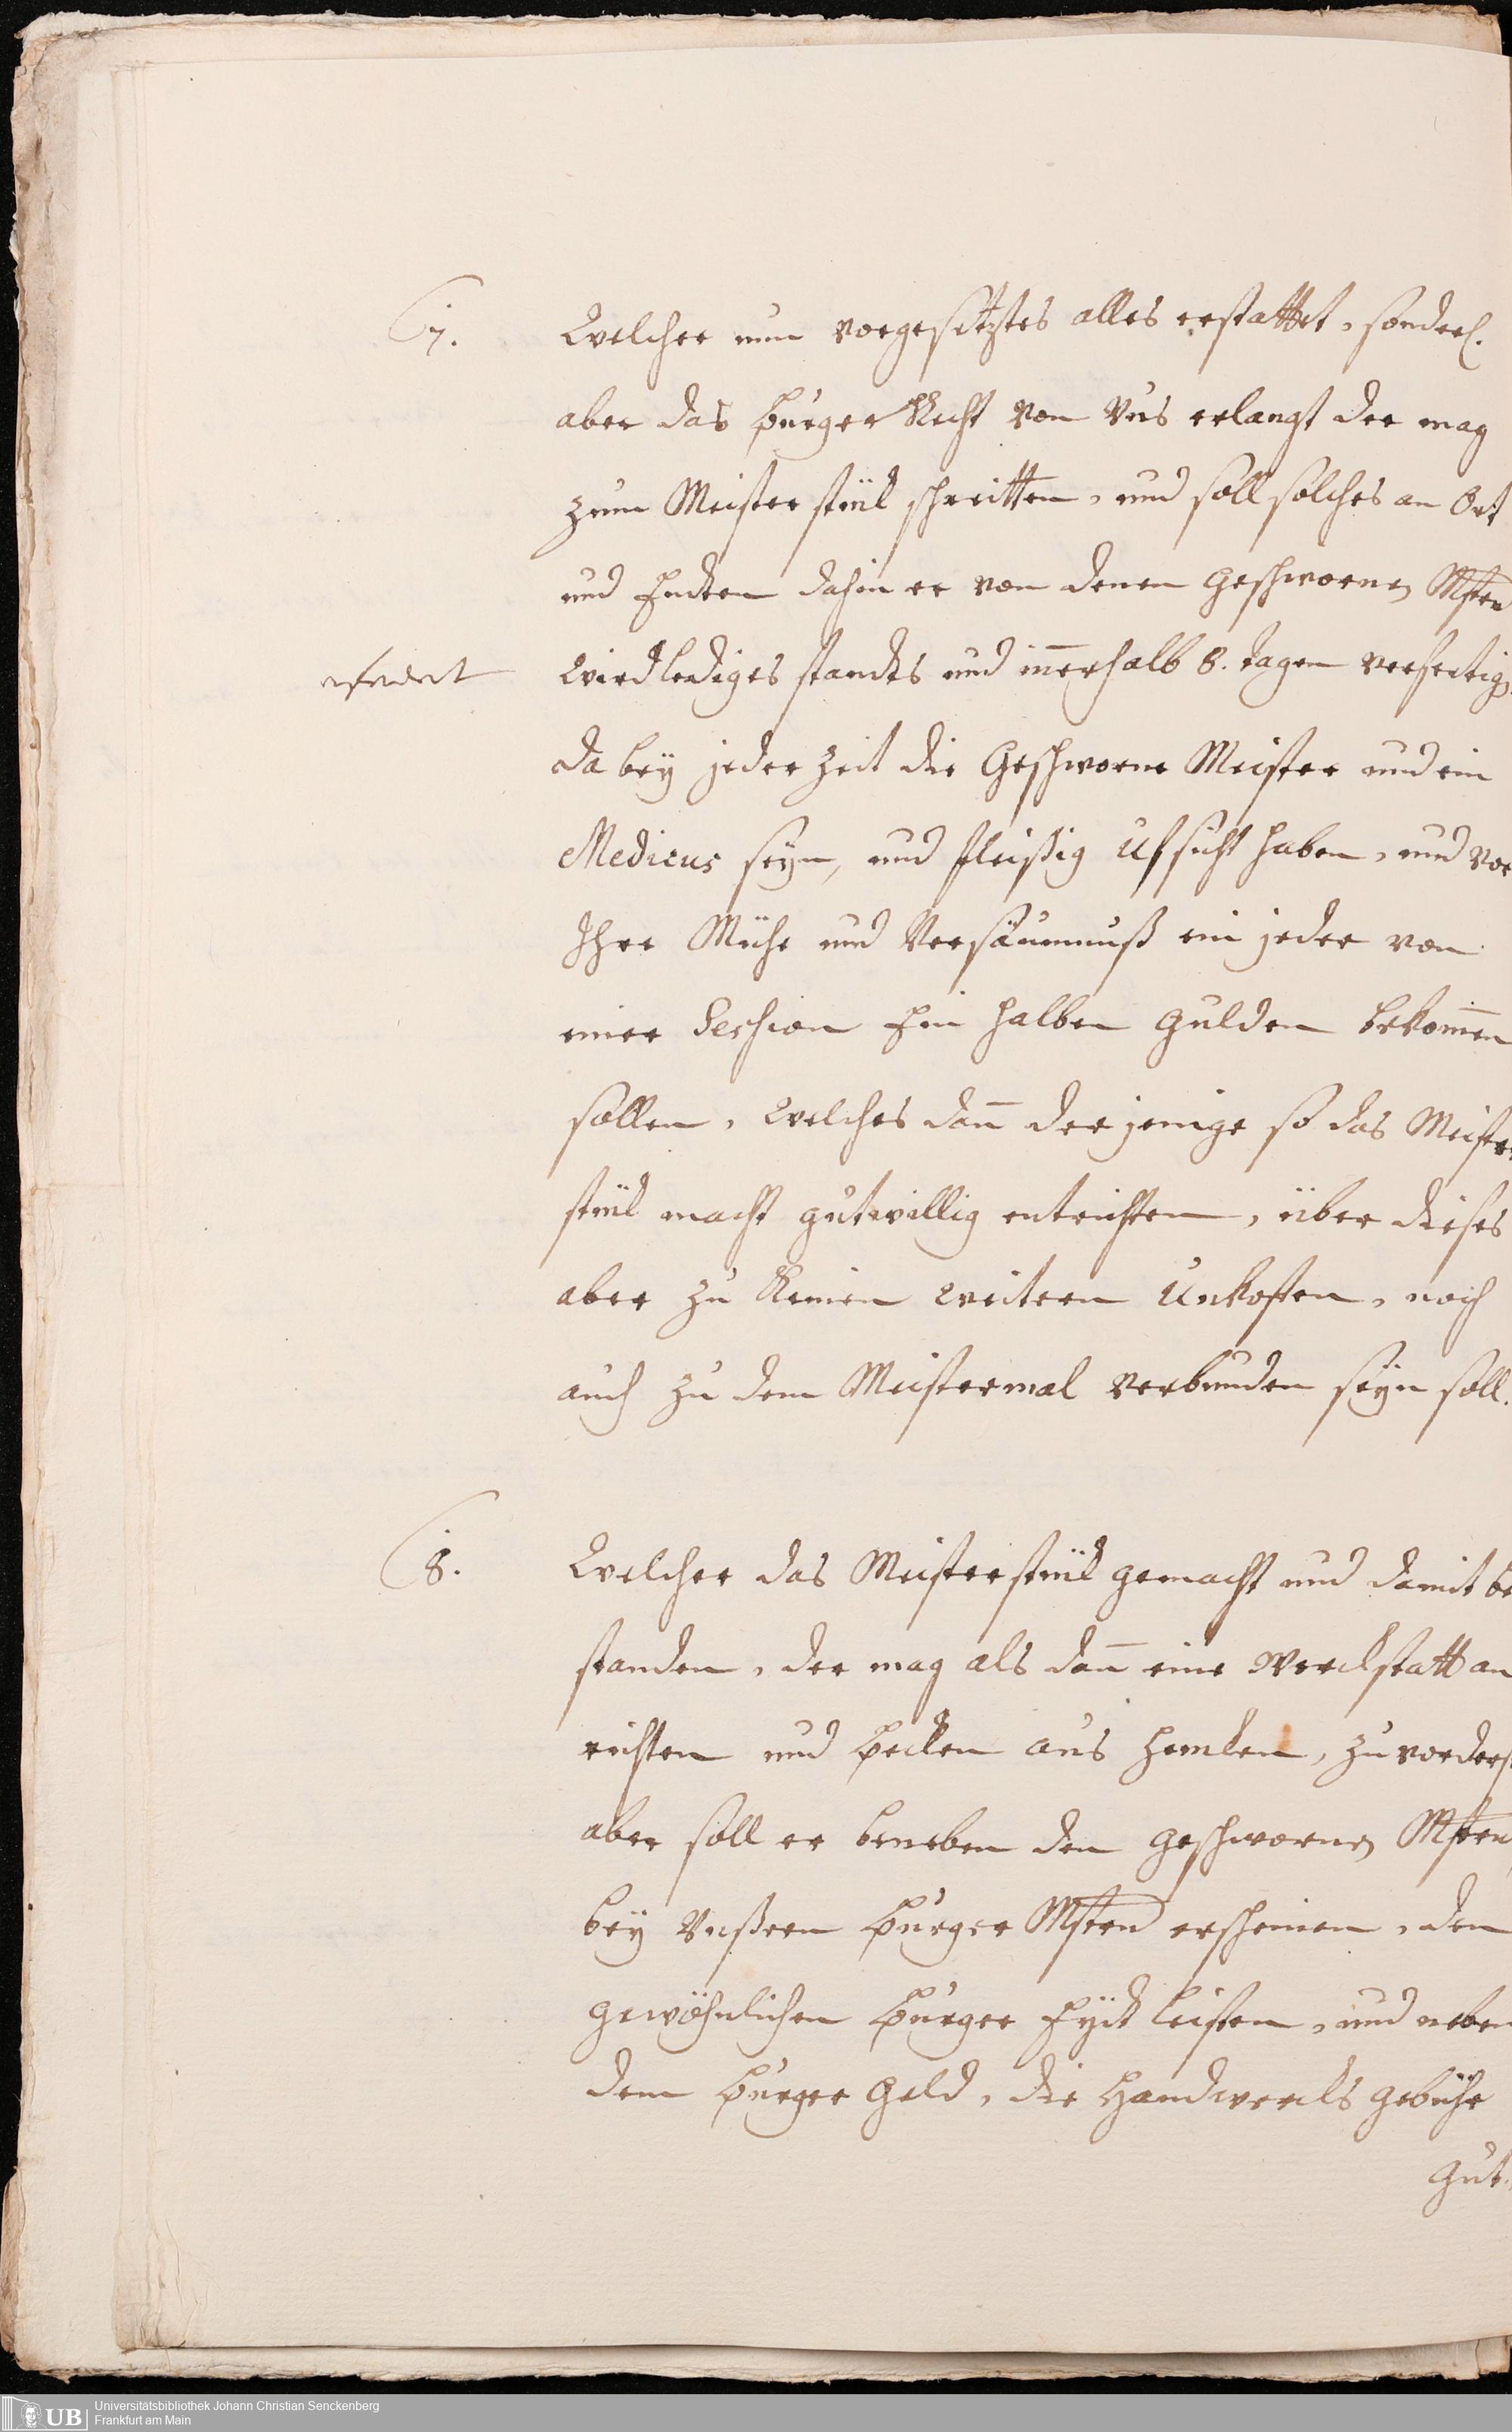 7. Welcher nun vorgesetztes alles erstattet, sonderl.
aber das Burger Recht von Vns erlangt der mag
zum Meisterstük schreitten, und soll solches an Ort
und Enden dahin er von denen Geschwornen Mstrn
wird lediges standts und innerhalb 8. tagen verfertigen
da bey jeder Zeit die Geschworne Meister und ein
Medicus seyn, und fleissig Ufsicht haben, und vor
Ihre Mühe und Versäumnuß ein jeder von
einer Session Ein halben Gulden bekommen
sollen, welches dann derjenige so das Meister
stük macht gutwillig entrichten, über dieses
aber zu keinen weitern Unkosten, noch
auch zu dem Meistermal verbunden seyn soll.
8. Welcher das Meisterstük gemacht und damit be
standen, der mag als dann eine Werckstatt an
richten und Becken aus henken, zuvorderst
aber soll er beneben den geschwornen Mstrn
bey Vnßern Burger Mstrn erscheinen, den
gewöhnlichen Burger Eydt leisten, und neben
dem Burger Geld, die Handwercks gebühr
Gut-
UB Universitätsbibliothek Johann Christian Senckenberg
Frankfurt am Main